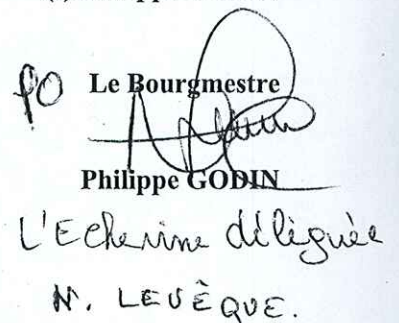 PO Le Bourgmestre
Philippe GODIN
L'Echevine déléguée
N. LEVÊQUE.